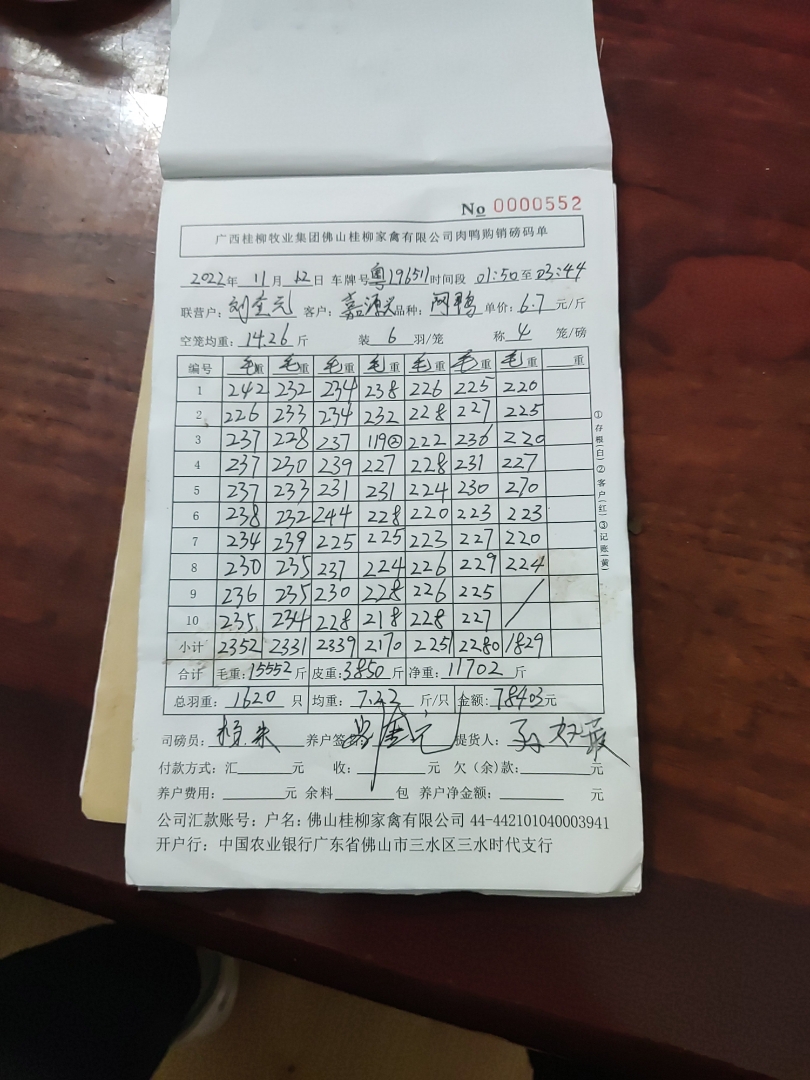 No 0000552
广西桂柳牧业集团佛山桂柳家禽有限公司肉鸭购销磅码单
2022年 11月 12日 车牌号粤19651时间段 01:50至03:44
联营户：刘奎元 客户：嘉源兴品种： 单价：6.7元/斤
空笼均重：14.26斤 装 6 羽/笼 称 4 笼/磅
编号 毛重 毛重 毛重 毛重 毛重 毛重 毛重 重
1 242 232 234 238 226 225 220
2 226 233 234 232 228 227 225
3 237 228 237 119② 222 236 220
4 237 230 239 227 228 231 227
5 237 233 231 231 224 230 270
6 238 232 244 228 220 223 223
7 234 239 225 225 223 227 220
8 230 235 237 224 226 229 224
9 236 235 230 228 226 225
10 235 234 228 218 228 227
小计 2352 2331 2339 2170 2251 2280 1829
合计 毛重：15552斤 皮重：3850斤 净重：11702斤
总羽重：1620只 均重：7.22斤/只 金额：78403元
司磅员： 养户签 提货人：
付款方式：汇 元 收： 元 欠（余）款： 元
养户费用： 元 余料 包 养户净金额： 元
公司汇款账号：户名：佛山桂柳家禽有限公司 44-442101040003941
开户行：中国农业银行广东省佛山市三水区三水时代支行
①存根(白)②客户(红)③记账(黄)